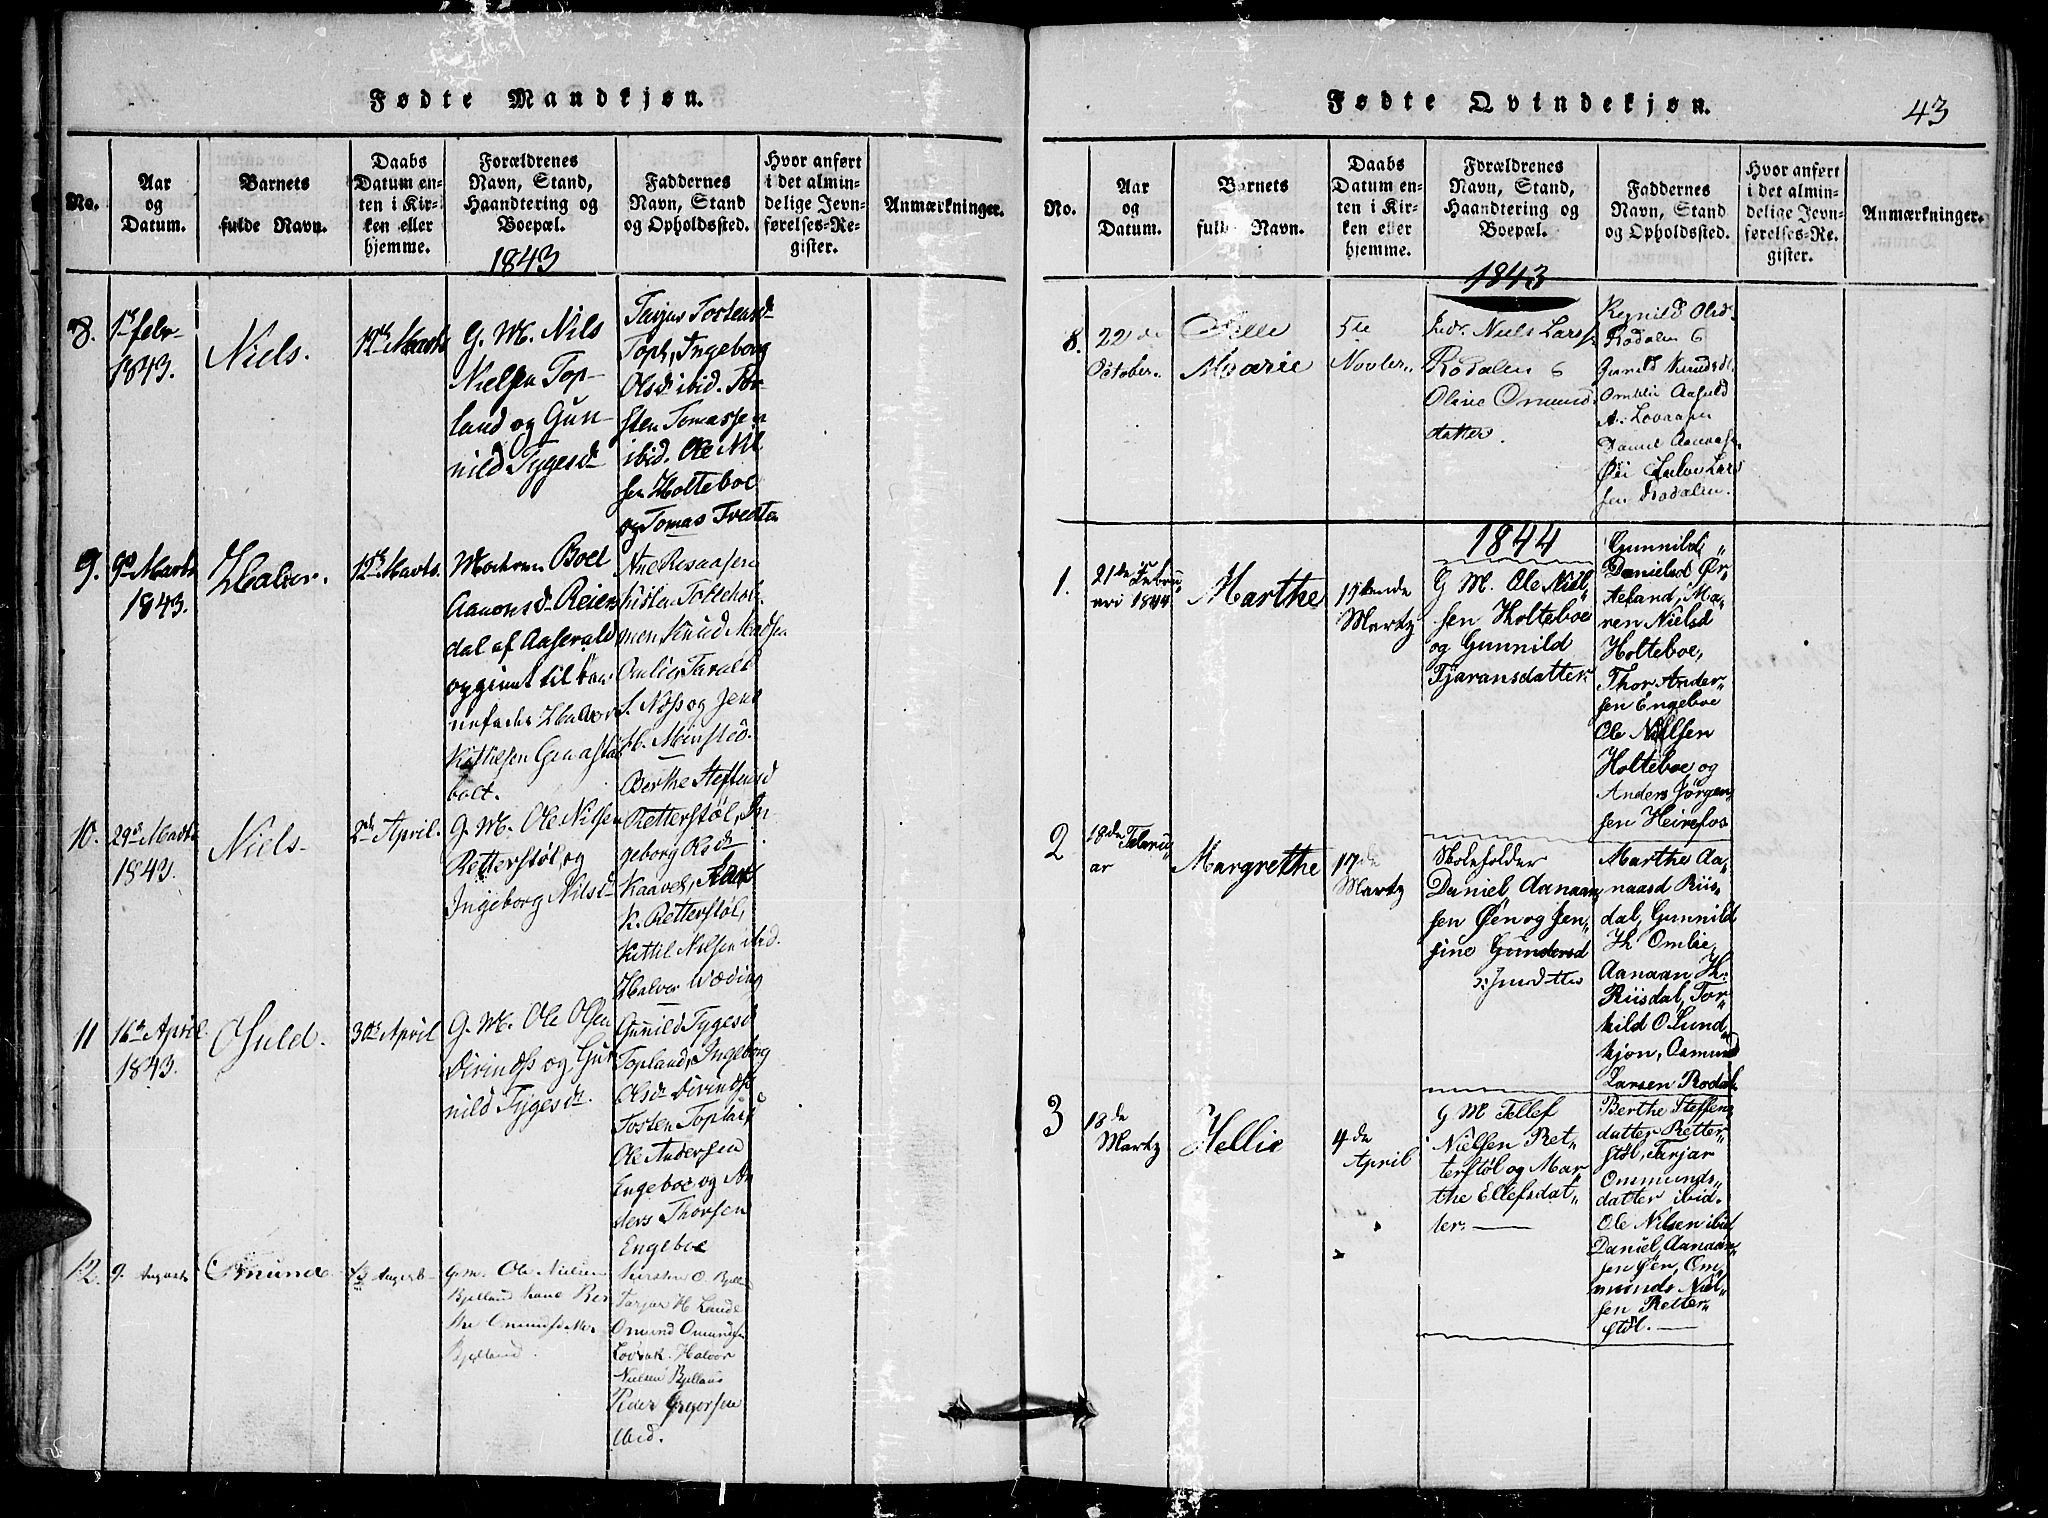 Fødte Mandkjøn.
No.
Aar
og
Datum.
Barnets
fulde Navn.
Daabs
Datum en-
ten i Kir-
ken eller
hjemme.
Forældrenes
Navn, Stand,
Haandtering og
Boepæl.
Faddernes
Navn, Stand
og Opholdssted.
Hvor anført
i det almin-
delige Jevn-
førelses-Re-
gister.
Anmærkninger.
1843
8.
1843.
Niels.
G. M. Nils
Nielsen Top-
land og Gun-
nild Tygesd
Tarjus Tostensd
Topl, Ingeborg
Olsd ibid. Tor-
sten Tomassen
ibid. Ole Nil
sen Holteboe
og Tomas Tvedten
9.
9d Marts
1843.
Halvor.
12te Marts.
Moderen Boel
Aanonsd Reiers
dal af Aaserald
og givet til bar-
nefader Halvor
bolt.
men Knud Madsen
Omlier Tarald
S. Næss og Jens
H. Meinsted.
10.
29d Marts
1843.
Niels.
2den April.
G. M. Ole Nilsen
Retterstøl og
Ingeborg Nilsd
Berthe Steffensd
Retterstøl, In
geborg Olsd
Kaavel,
K. Retterstøl,
Kittil Nilsen ibid.
Halvor Væding
11
16de April.
1843.
Osuld.
30te April
G. M. Ole Olsen
Divindss og Gun
nild Tygesd.
Gunild Tygesd
Topland, Ingeborg
Olsd Divindss
Tosten Topland
Ole Andersen
Engeboe og An
ders Thorsen
Engeboe
12.
9. August
Omund
13 August
G. M. Ole Nielsen
Bjelland kone Ber
the Omundsdatter
Bjelland.
Kirsten O. Bjell
Tarjer H Lande
Omund Omundsen
Lovrak. Halvor
Nielsen Bjelland
Peder Gregorsen
ibid.
Fødte Qvindekjøn.
43
No.
Aar
og
Datum.
Barnets
fulde Navn.
Daabs
Datum en-
ten i Kir-
ken eller
hjemme.
Forældrenes
Navn, Stand,
Haandtering og
Boepæl.
Faddernes
Navn, Stand
og Opholdssted.
Hvor anført
i det almin-
delige Jevn-
førelses-Re-
gister.
Anmærkninger.
1843
8.
22de
October.
Marie
5te
Novbr.
Indr. Niels Larss.
Rodalen &
Olive Omund
datter.
Regnild Olsd.
Rodalen &
Gunild Knudsd.
Omblie Aasuld
A. Lovaasen
Daniel Aanaas.
Øie Lars
sen Rodalen.
1844
1.
21de Febru
ari 1844.
Marthe
15tende
Martz
G M. Ole Niel
sen Holteboe
og Gunnild
Tjøransdatter
Gunnild
Danielsd Ør
teland, Ma
ren Nielsd
Holteboe,
Thor Ander
sen Engeboe
Ole Nielsen
Holteboe og
Anders Jørgen
sen Heirefos
2
18de Februu
ar
Margrethe
17de
Martz
Skoleholder
Daniel Aanaan
sen Øen og Jen
sine Gundersd
Marthe Aa
naasd Riis
dal, Gunnild
Th Omlie,
Aanaan Th.
Riisdal, Tor
kild O Lund
kjøn, Osmund
Larsen Rodal.
3
18de
Martz
Hellie
4de
April
G M Tellef
Nielsen Ret
terstøl og Mar
the Ellefsdat
ter.
Berthe Steffens
datter Retter
støl, Tarjar
Ommunds
datter ibid.
Ole Nilsen ibid
Daniel Aanaan
sen Øen, Om
munds Niel
sen Retter
støl.